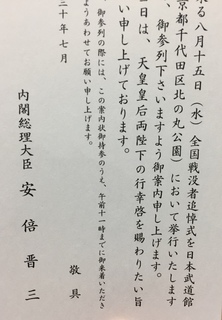 る八月十五日（水）全国戦没者追悼式を日本武道館
京都千代田区北の丸公園）において挙行いたします
、御参列下さいますよう御案内申し上げます。
日は、天皇皇后両陛下の行幸啓を賜わりたい旨
い申し上げております。
、御参列の際には、この案内状御持参のうえ、午前十一時までに御来着いただき
ようあわせてお願い申し上げます。
敬具
三十年七月
内閣総理大臣 安倍晋三